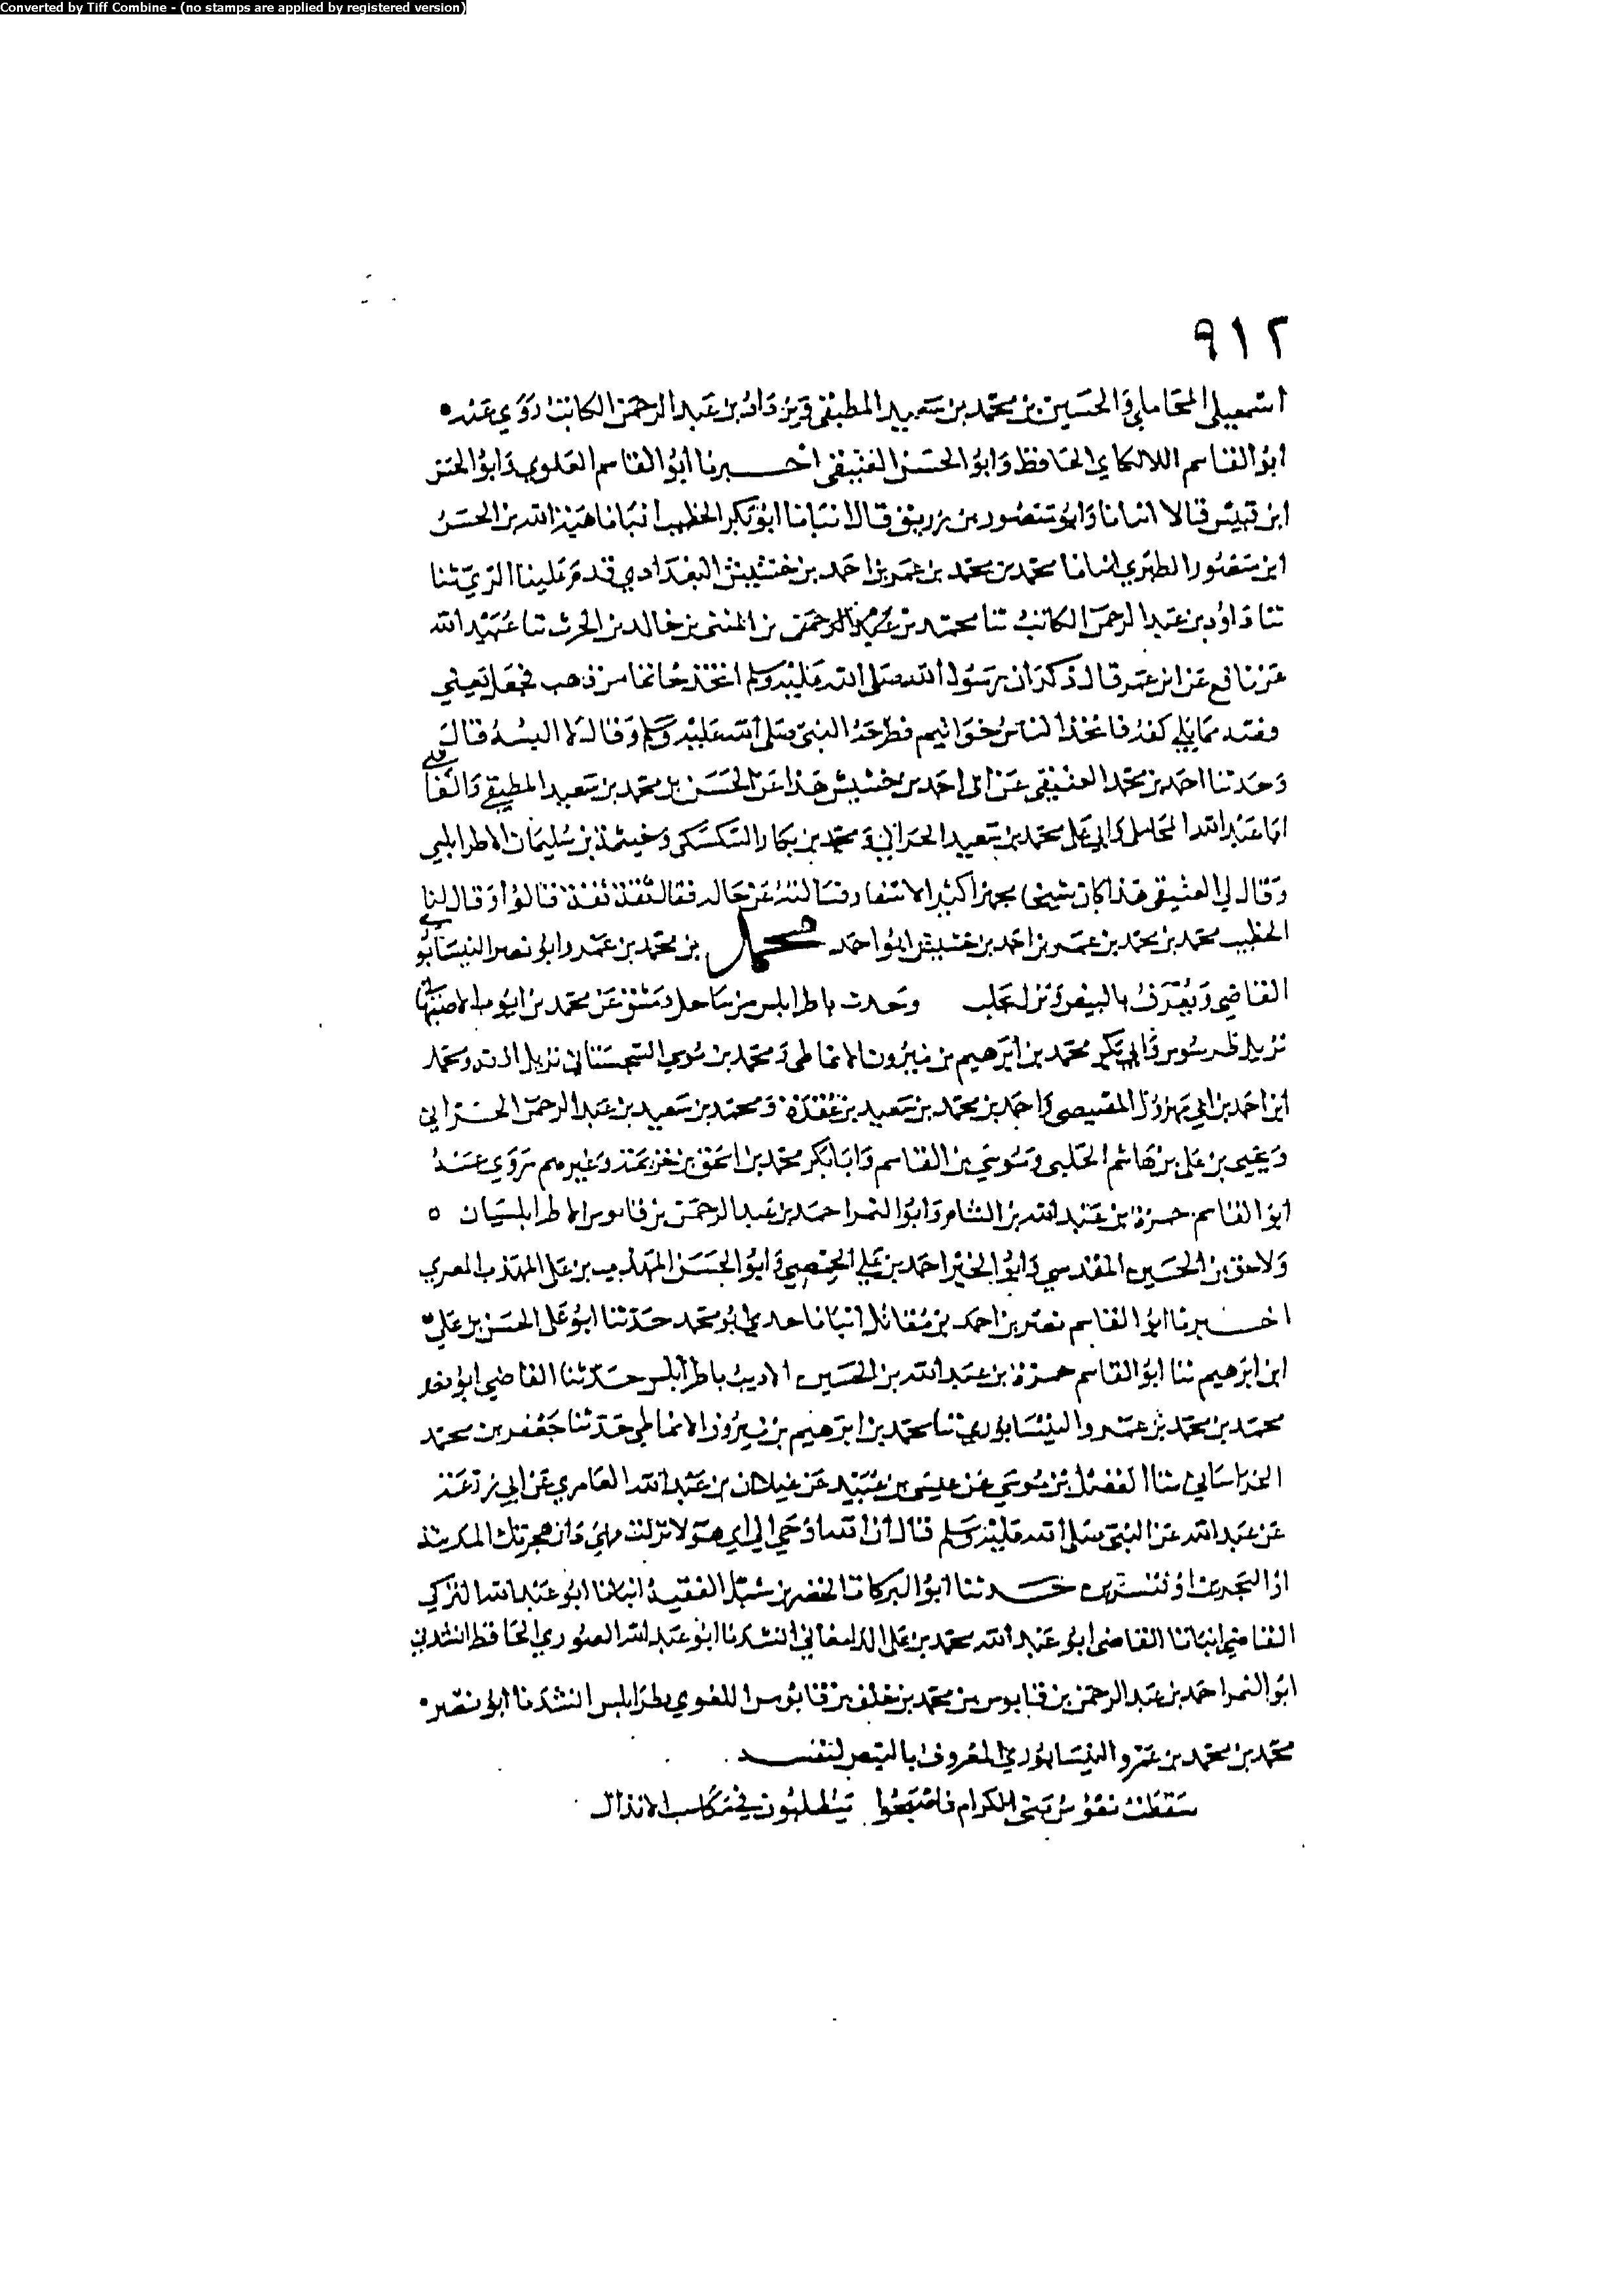 Converted by Tiff Combine - (no stamps are applied by registered version)
٩١٢
اسمعيل المحاملي والحسين بن محمد بن سعيد المطبقي ويزداد بن عبد الرحمن الكاتب روى عنه
ابو القاسم اللالكاي الحافظ وابو الحسن العتيقي اخبرنا ابو القاسم العلوي وابو الحسن
ابن قبيس قالا انبانا وابو منصور بن زريق قال انبانا ابو بكر الخطيب انبانا هبة الله بن الحسن
ابن منصور الطبري انبانا محمد بن محمد بن عمر بن احمد بن خشيش البغدادي قدم علينا الري ثنا
ثنا داود بن عبد الرحمن الكاتب ثنا محمد بن الرحمن بن المثنى بن خالد بن الحرث ثنا عبيد الله
عن نافع عن ابن عمر قال ذكر ان رسول الله صلى الله عليه وسلم اتخذ خاتما من ذهب فجعل يعني
فصه مما يلي كفه فاتخذ الناس خواتيم فطرحه النبي صلى الله عليه وسلم وقال لا البسه قال
وحدثنا احمد بن محمد العتيقي عن ابي احمد بن خشيش هذا عن الحسن بن محمد بن سعيد المطبقي والقا
ضي
ابا عبد الله المحاملي وابي علي محمد بن سعيد الحراني ومحمد بن بكار السكسكي وخيثمة بن سليمان الاطرابلسي
وقال لي العتيقي هذا كان شيخا مجهزا كثير الاسفار وسالته عن حاله فقال ثقة ثقة قالوا وقال لنا
الخطيب محمد بن محمد بن عمر بن احمد بن خشيش ابو احمد محمد بن محمد بن عمرو ابو نصر النيسابو
ري
القاضي ويعرف بالبيض نزل حلب وحدث باطرابلس من ساحل دمشق عن محمد بن ايوب الاصبها
ني
نزيل طرسوس وابي بكر محمد بن ابرهيم بن نيروز الانماطي ومحمد بن موسي السجستاني نزيل ومحمد
ابن احمد بن ابي مهزول المصيصي واحمد بن محمد بن سعيد بن عقدة ومحمد بن سعيد بن عبد الرحمن الحراني
ويحيى بن علي بن هاشم الحلبي وموسى بن القاسم وابا بكر محمد بن اسحق بن خزيمة وغيرهم روى عنه
ابو القاسم حمزة بن عبد الله بن الشام وابو النمر احمد بن عبد الرحمن بن قابوس الاطرابلسيان ٥
ولاحق بن الحسين المقدسي وابو الخير احمد بن علي الحمصي وابو الحسن المهذب بن علي المهذب المعري
اخبرنا ابو القاسم نصر بن احمد بن مقاتل انبانا جدي ابو محمد حدثنا ابو علي الحسن بن علي
ابن ابرهيم ثنا ابو القاسم حمزة بن عبد الله بن الحسين الاديب باطرابلس حدثنا القاضي ابو نصر
محمد بن محمد بن عمرو النيسابوري ثنا محمد بن ابرهيم بن نيروز الانماطي حدثنا جعفر بن محمد
الخراساني ثنا الفضل بن موسى عن عيسى بن عبيد عن غيلان بن عبد الله العامري عن ابي زرعة
عن عبد الله عن النبي صلى الله عليه وسلم قال ان الله اوحي الي اي هولا نزلت فهي دار هجرتك المدينة
او البحرين او قنسرين حدثنا ابو البركات الخضر بن شبل الفقيه انبانا ابو عبد الله التركي
القاضي انبانا القاضي ابو عبد الله محمد بن علي الدامغاني انشدنا ابو عبد الله الصوري الحافظ انشدني
ابو النمر احمد بن عبد الرحمن بن قابوس بن محمد بن خلف بن قابوس اللغوي بطرابلس انشدنا ابو نصر
محمد بن محمد بن عمرو النيسابوري المعروف بالبيض لنفسه
سقطت نفوس بني الكرام فاصبحوا يتطلبون في مكاسب الانذال